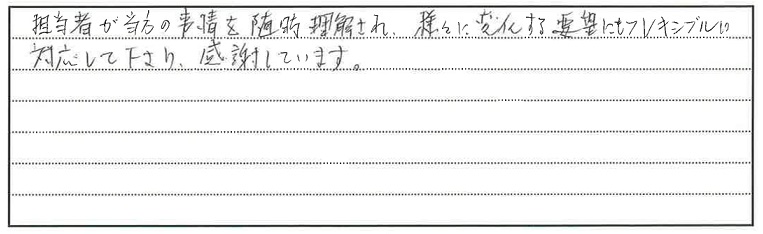 担当者が当方の事情を随時理解され、様々に変化する要望にもフレキシブルに
対応して下さり、感謝しています。